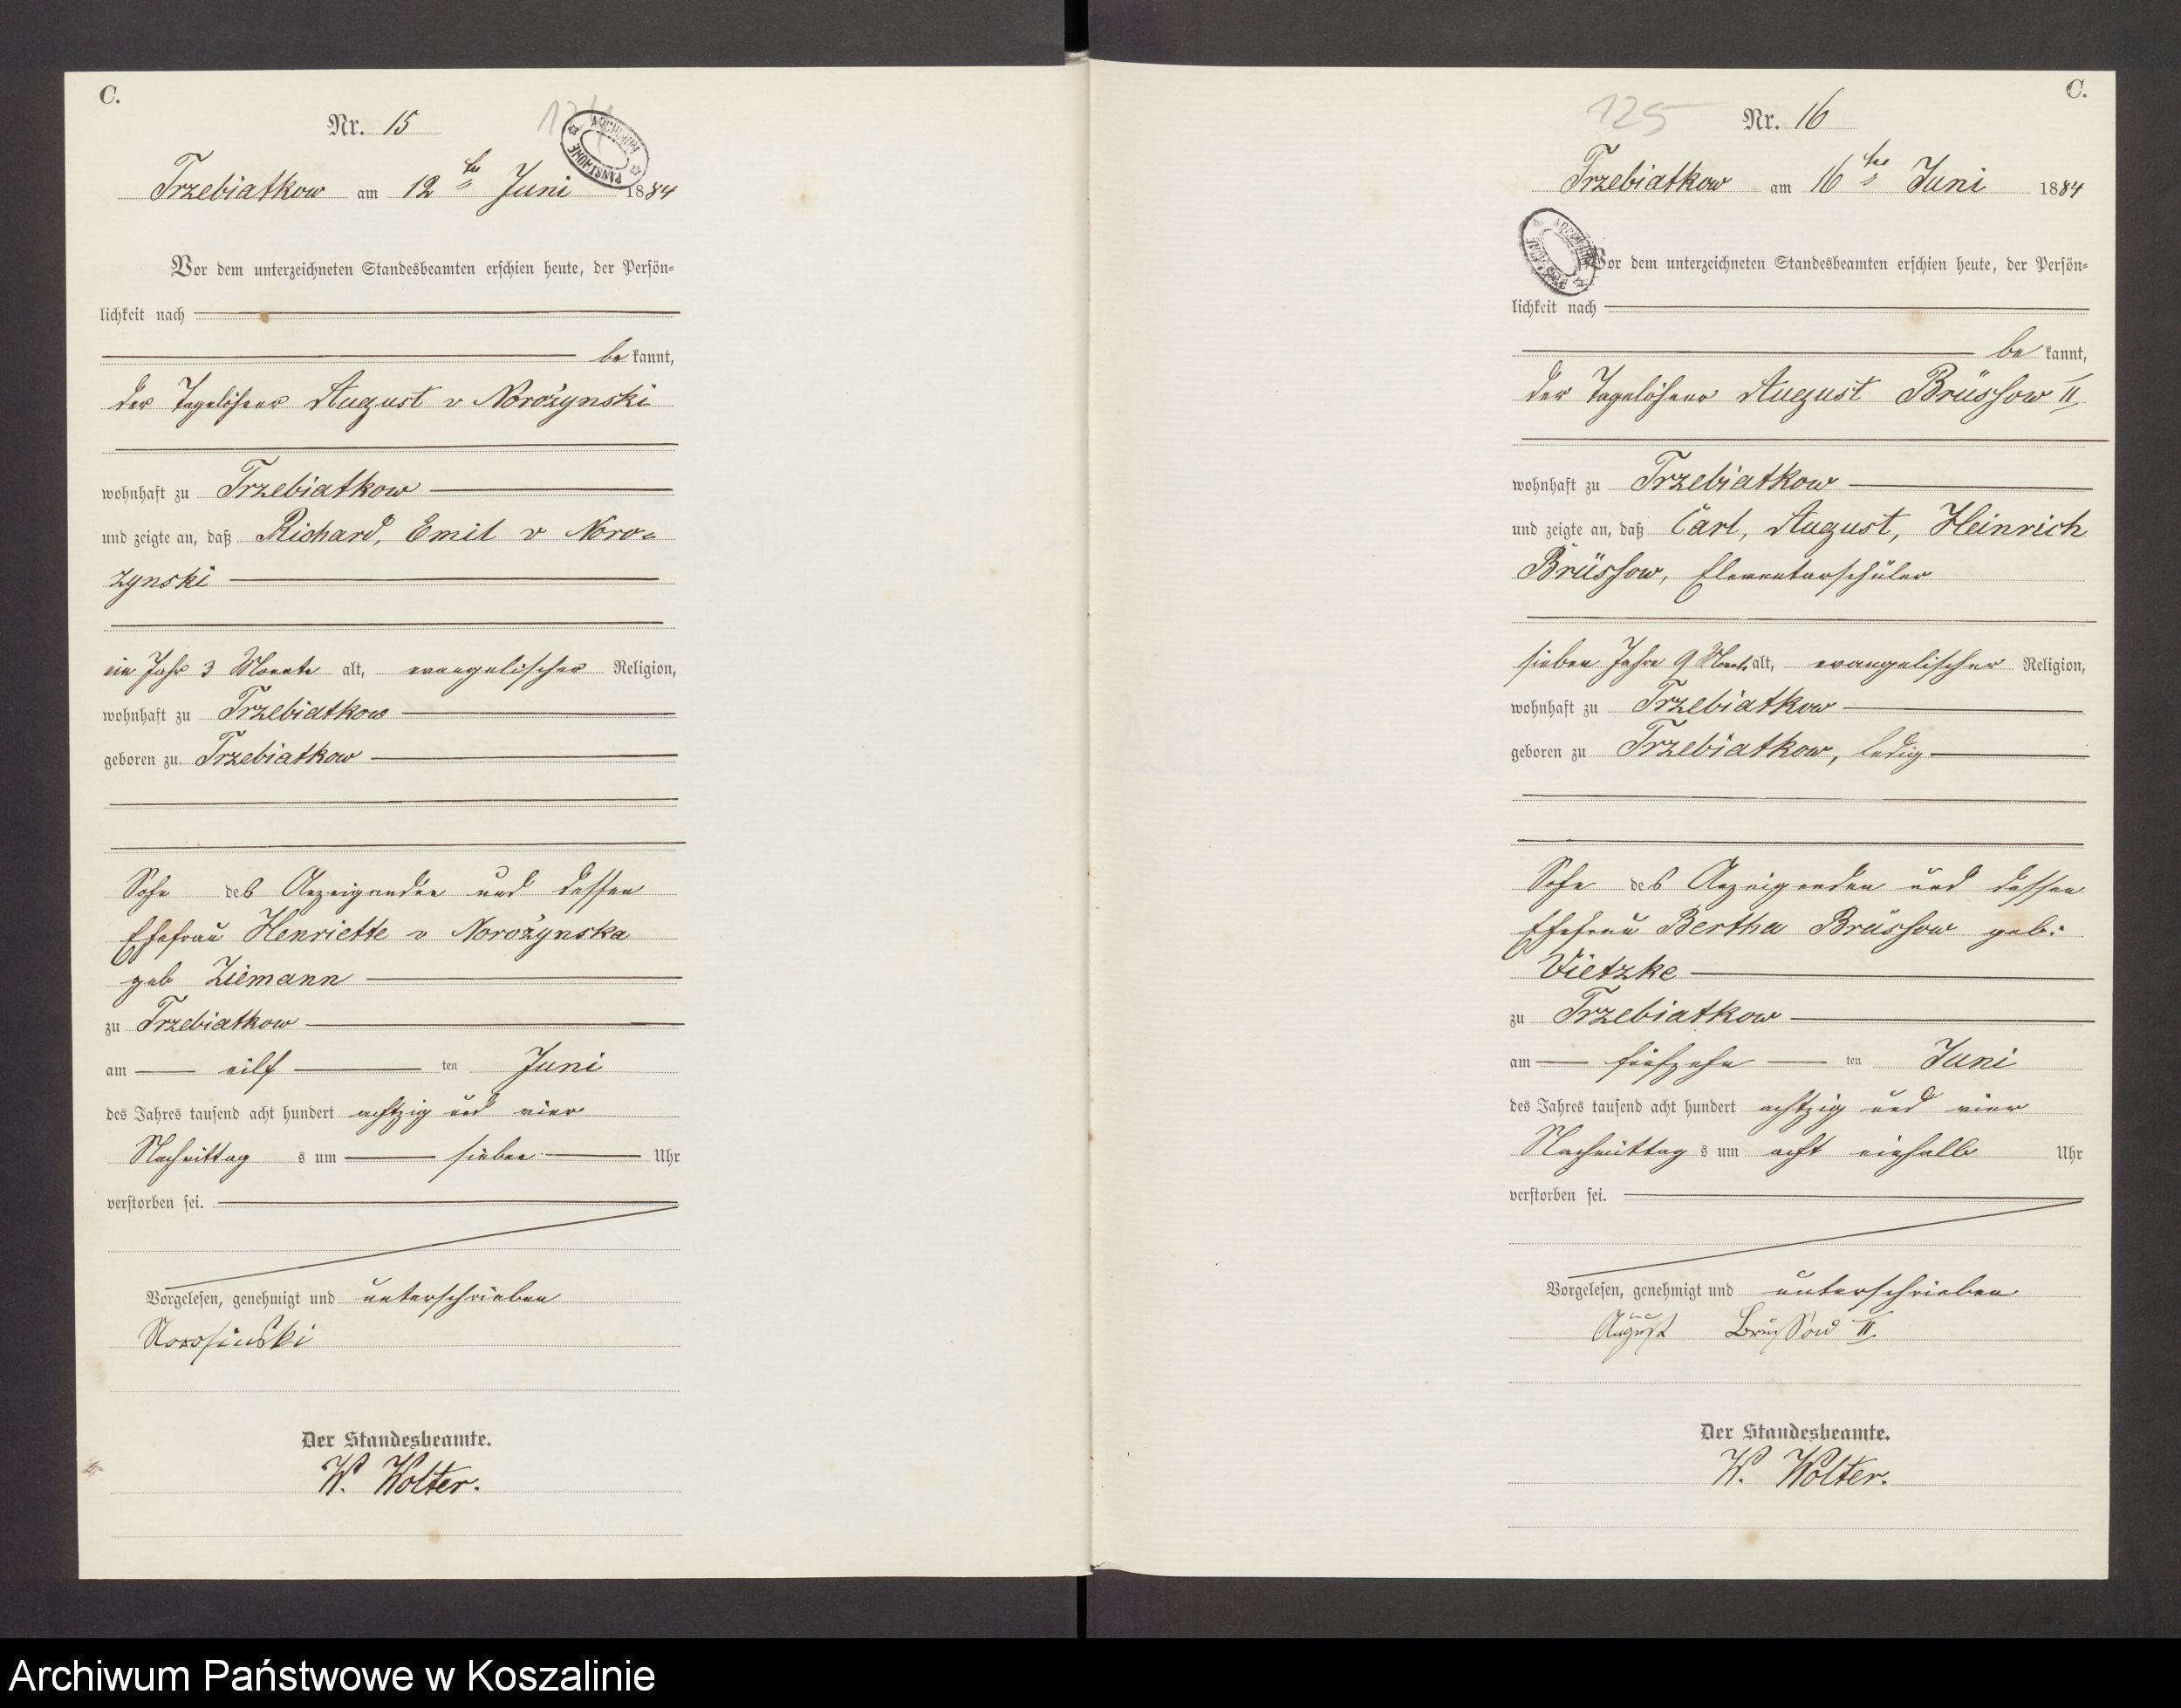 C.
Nr. 15
Trzebiatkow am 12ten Juni 1884
Vor dem unterzeichneten Standesbeamten erschien heute, der Persön-
lichkeit nach
bekannt,
der Tagelöhner August v Norożynski
wohnhaft zu Trzebiatkow
und zeigte an, daß Richard, Emil v Noro-
zynski
ein Jahr 3 Monate alt, evangelischer Religion,
wohnhaft zu Trzebiatkow
geboren zu Trzebiatkow
Sohn des Anzeigenden und dessen
Ehefrau Henriette v Norożynska
geb Ziemann
zu Trzebiatkow
am eilf ten Juni
des Jahres tausend acht hundert achtzig und vier
Nachmittags um sieben Uhr
verstorben sei.
Vorgelesen, genehmigt und unterschrieben
Der Standesbeamte.
W. Wolter.
C.
125
Nr. 16
Trzebiatkow am 16ten Juni 1884
Vor dem unterzeichneten Standesbeamten erschien heute, der Persön-
lichkeit nach
bekannt,
der Tagelöhner August Brüssow II
wohnhaft zu Trzebiatkow
und zeigte an, daß Carl, August, Heinrich
Brüssow, Elementarschüler
sieben Jahre 9 Mont. alt, evangelischer Religion,
wohnhaft zu Trzebiatkow
geboren zu Trzebiatkow, ledig
Sohn des Anzeigenden und dessen
Ehefrau Bertha Brüssow geb:
Vietzke
zu Trzebiatkow
am fünfzehn ten Juni
des Jahres tausend acht hundert achtzig und vier
Nachmittags um acht einhalb Uhr
verstorben sei.
Vorgelesen, genehmigt und unterschrieben
August Brüssow II.
Der Standesbeamte.
W. Wolter.
Archiwum Państwowe w Koszalinie